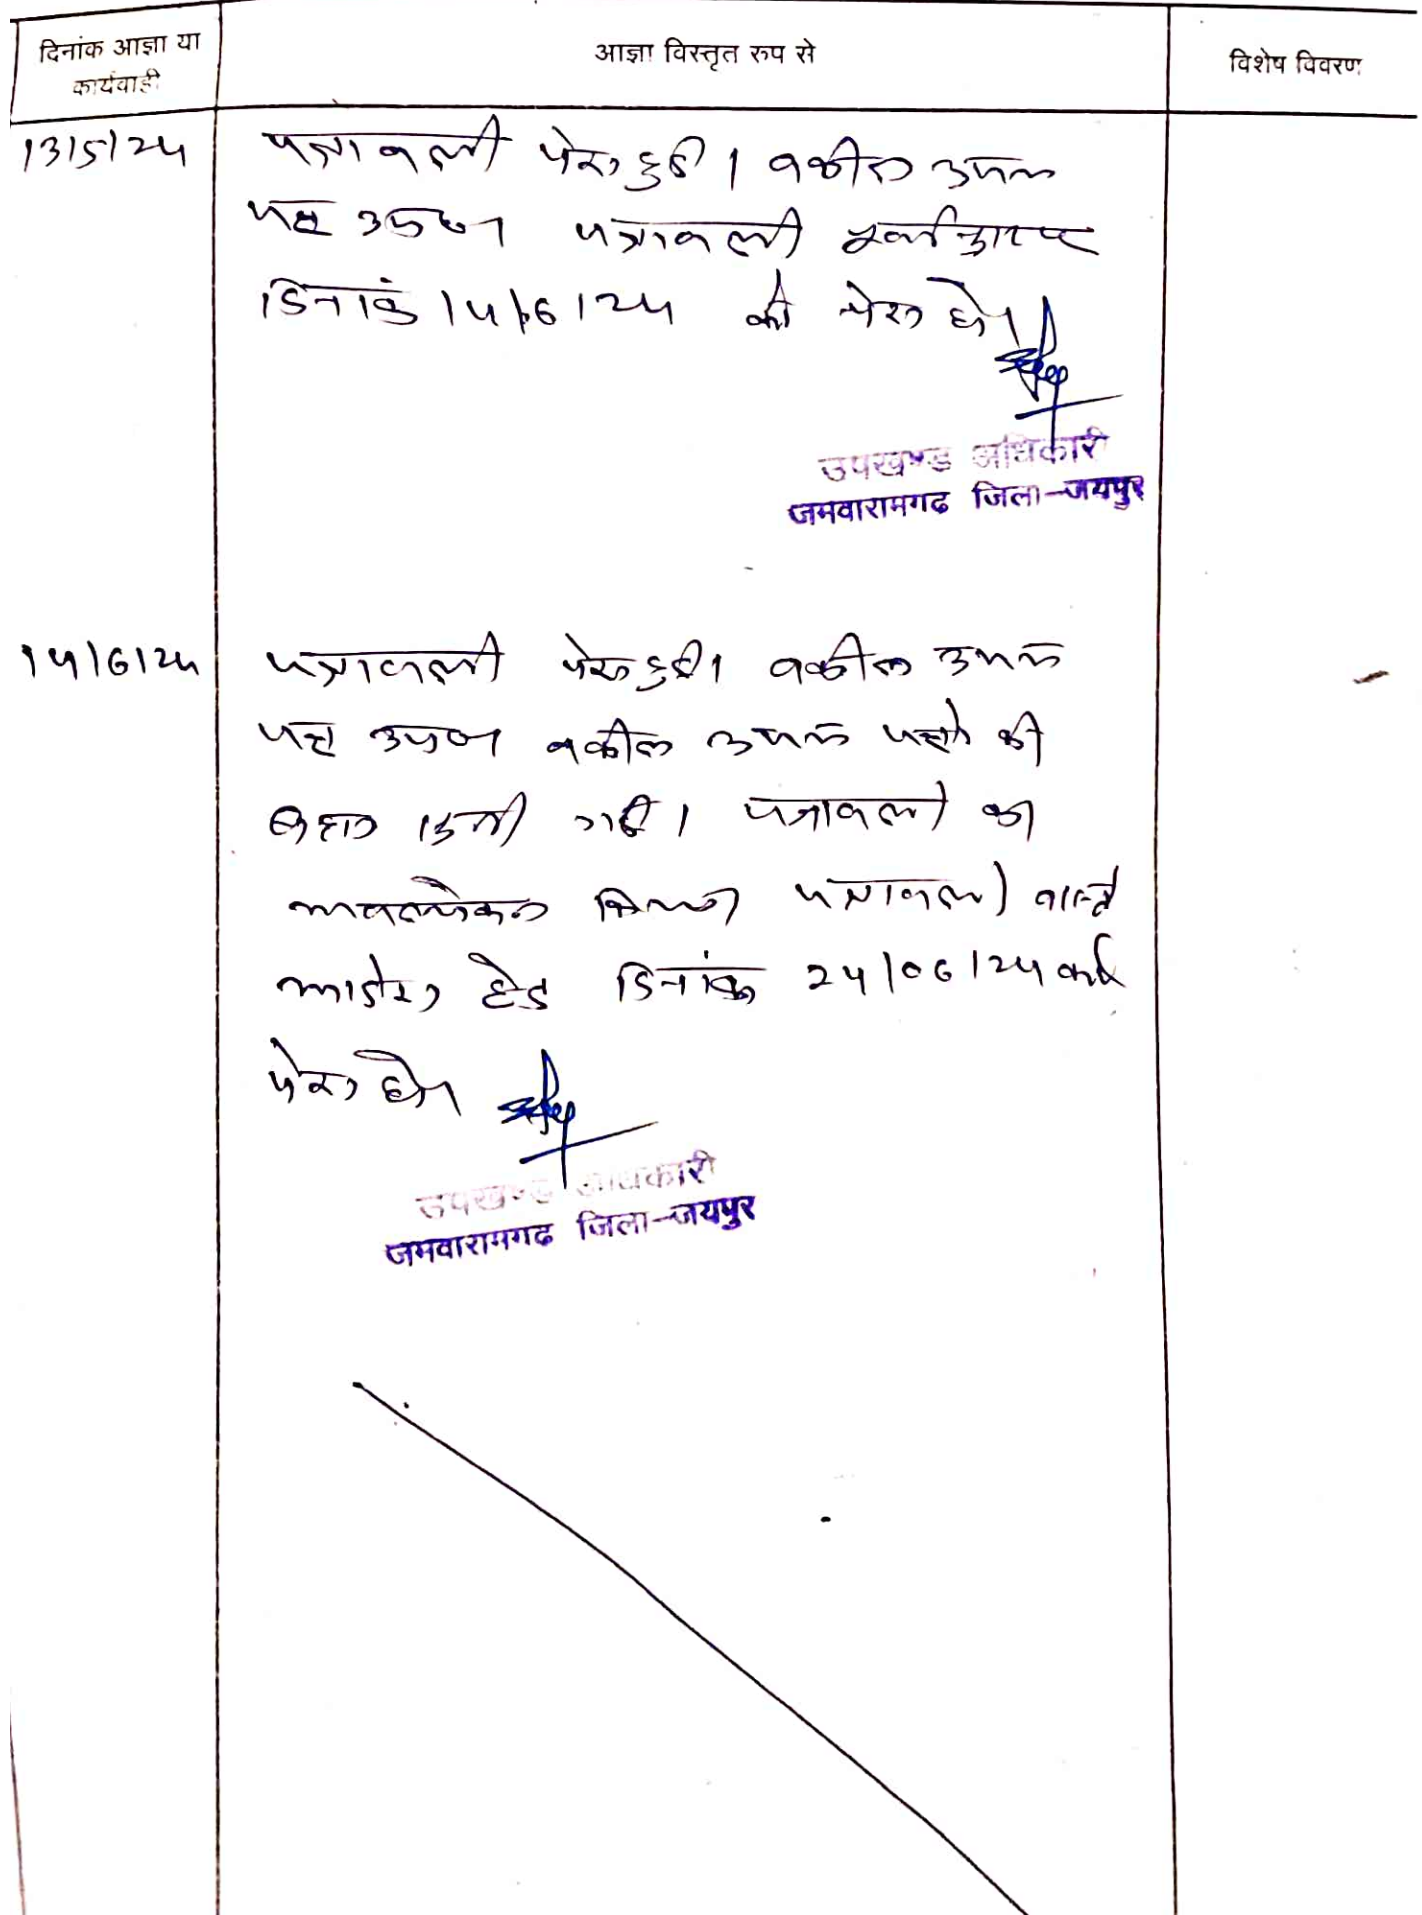 दिनांक आज्ञा या
कार्यवाही
आज्ञा विस्तृत रूप से
विशेष विवरण
13/5/24
पत्रावली पेश हुई। वकील उभय
पक्ष उप0। पत्रावली
दिनांक 14/6/24 को पेश हो।
उपखण्ड अधिकारी
जमवारामगढ जिला-जयपुर
14/6/24
पत्रावली पेश हुई। वकील उभय
पक्ष उप0। वकील उभय पक्षो की
बहस सुनी गई। पत्रावली का
अवलोकन किया। पत्रावली वास्ते
आदेश हेतु दिनांक 24/06/24 को
पेश हो।
उपखण्ड अधिकारी
जमवारामगढ जिला-जयपुर